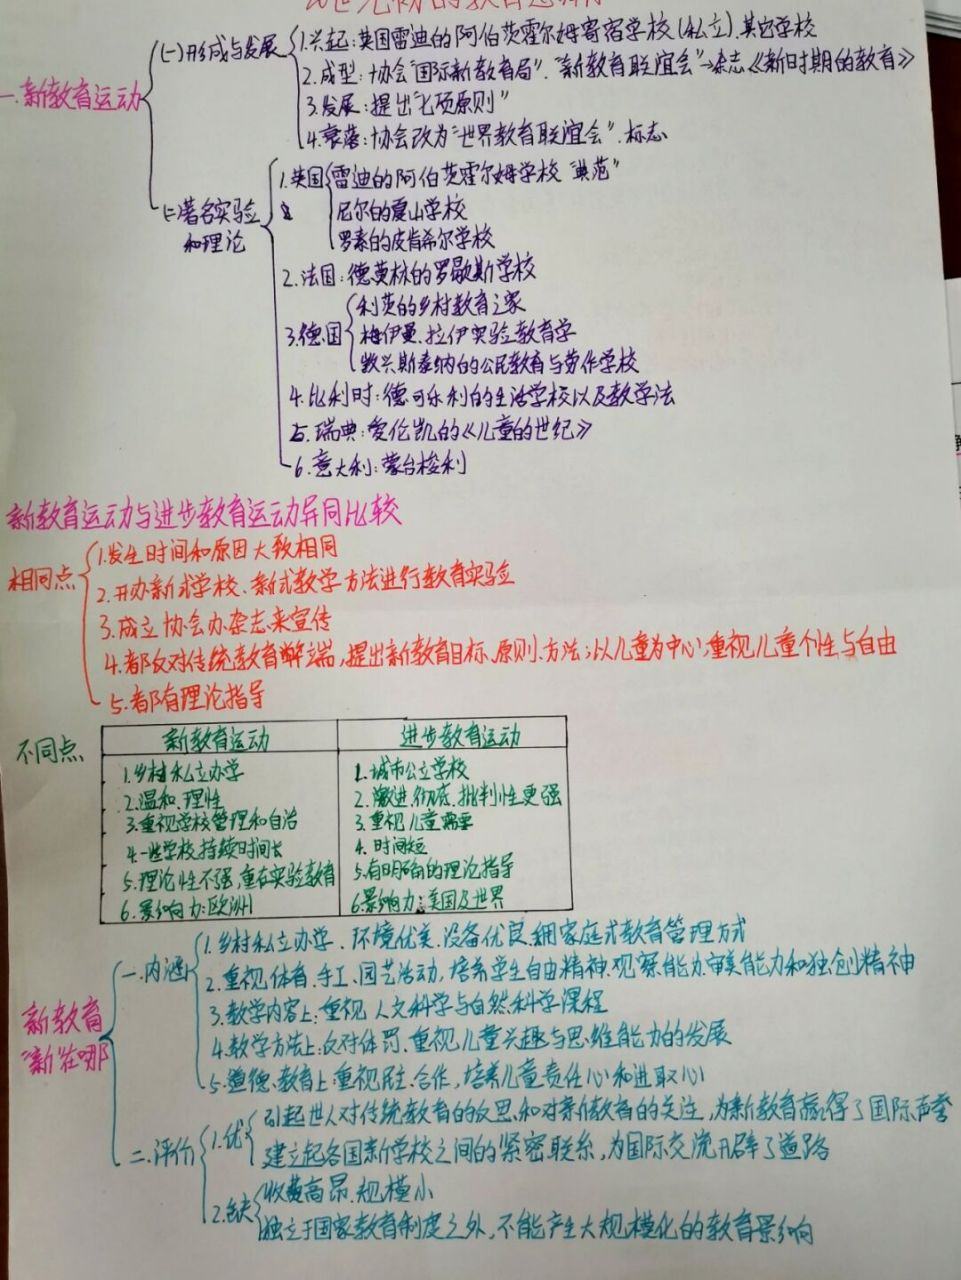 的教育思
一.新教育运动
(一)形成与发展
1.兴起:英国雷迪的阿伯茨霍尔姆寄宿学校(私立).其它学校
2.成型:协会"国际新教育局"."新教育联谊会"→杂志《新时期的教育》
3.发展:提出"七项原则"
4.衰落:协会改为"世界教育联谊会".标志
(二)著名实验
和理论
1.英国
雷迪的阿伯茨霍尔姆学校"典范"
尼尔的夏山学校
罗素的皮肯希尔学校
2.法国:德莫林的罗歇斯学校
3.德国
利茨的乡村教育之家
梅伊曼.拉伊实验教育学
凯兴斯泰纳的公民教育与劳作学校
4.比利时:德可乐利的生活学校以及教学法
5.瑞典:爱伦凯的《儿童的世纪》
6.意大利:蒙台梭利
新教育运动与进步教育运动异同比较
相同点
1.发生时间和原因大致相同
2.开办新式学校、新式教学方法进行教育实验
3.成立协会办杂志来宣传
4.都反对传统教育弊端,提出新教育目标、原则、方法;以儿童为中心;重视儿童个性与自由
5.都有理论指导
不同点
新教育运动 进步教育运动
1.乡村私立办学 1.城市公立学校
2.温和.理性 2.激进.彻底.批判性更强
3.重视学校管理和自治 3.重视儿童需要
4.一些学校持续时间长 4.时间短
5.理论性不强,重在实验教育 5.有明确的理论指导
6.影响力:欧洲 6.影响力:美国及世界
新教育
"新"在哪
一.内涵
1.乡村私立办学、环境优美.设备优良.采用家庭式教育管理方式
2.重视体育.手工.园艺活动,培养学生自由精神.观察能力.审美能力和独创精神
3.教学内容上:重视人文科学与自然科学课程
4.教学方法上:反对体罚.重视儿童兴趣与思维能力的发展
5.道德教育上:重视民主.合作,培养儿童责任心和进取心
二.评价
1.优
引起世人对传统教育的反思和对新教育的关注,为新教育赢得了国际声誉
建立起各国新学校之间的紧密联系,为国际交流开辟了道路
2.缺
收费高昂.规模小
独立于国家教育制度之外,不能产生大规模化的教育影响